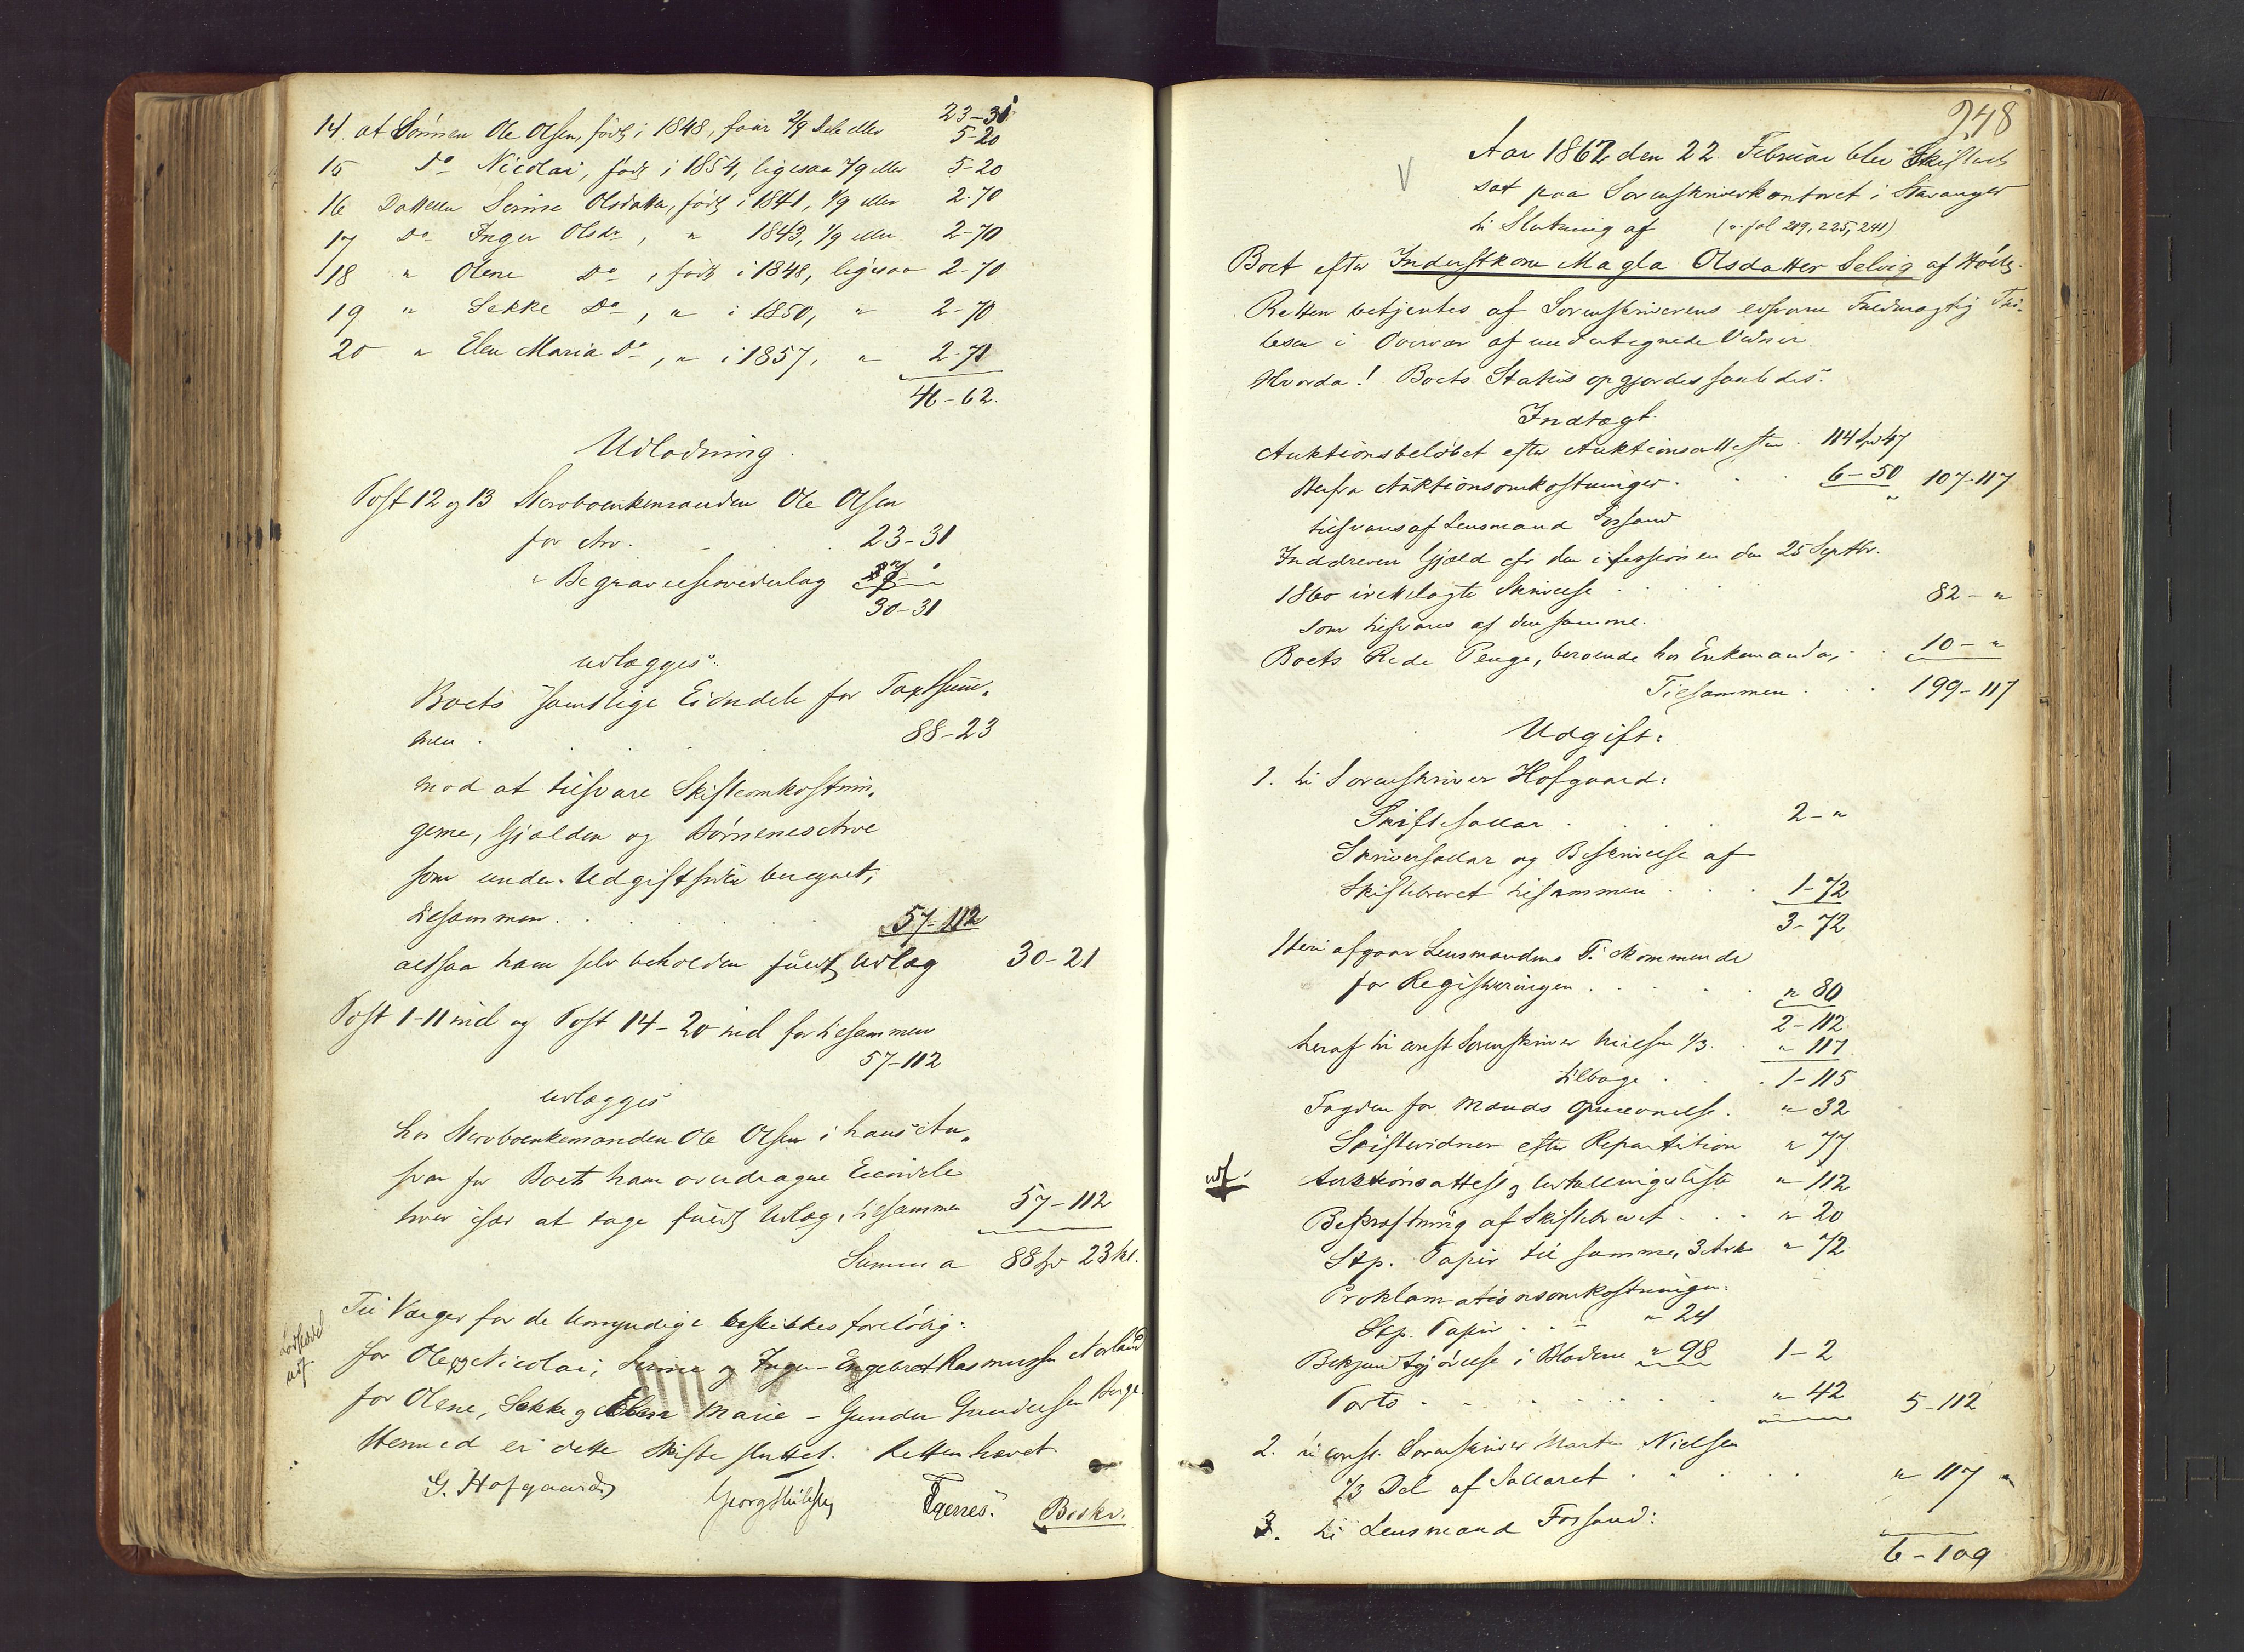 23-31
14. at Sønnen Ole Olsen, født i 1848, faar 2/9 Dele eller 5-20
15 Do Nicolai, født i 1854, ligesaa 2/9 eller 5-20
16 Datteren Serine Olsdatter, født i 1841, 1/9 eller 2-70
17 Do Inger Olsdr, " 1843, 1/9 eller 2-70
18 " Olene Do, født i 1848, ligesaa 2-70
19 " Sekke Do, " i 1850, " 2-70
20 " Elen Maria Do, " i 1857, " 2-71
46-62.
Udlodning.
Post 12 og 13 Stervboenkemanden Ole Olsen
for Arv. 23-31
" Begravelsesvederlag 7 "
30-31
udlægges:
Boets samtlige Eiendele for Taxtsum-
men . 88-23
mod at tilsvare Skifteomkostnin-
gerne, Gjælden og Børnenes Arve
som under Udgiftsiden beregnet,
tilsammen . 57-112
altsaa ham selv beholden fuldt Udlæg 30-21
Post 1-11 incl og Post 14-20 incl for tilsammen
57-112
udlægges
hos Stervboenkemanden Ole Olsen i hans An-
svar for Boets ham overdragne Eiendele
hver især at tage fuldt Udlæg, tilsammen 57-112
Summa 88 Spd 23 Sk.
Til Værger for de Umyndige beskikkes foreløbig:
for Ole og Nicolai, Serine og Inger - Engebret Rasmussen
for Olene, Sekke og Elen Marie - Gunder Gundersen Berge.
Hermed er dette Skifte sluttet. Retten hævet.
G. Hofgaard Tjerres. Beskr.
248
Aar 1862 den 22 Februar blev Skifteret
sat paa Sorenskriverkontoret i Stavanger
til Slutning af (v. fol 219, 225, 241)
Boet efter Inderstkone Magla Olsdatter Selvig af
Retten betjentes af Sorenskriverens edsvorne Fuldmægtig
i Overvær af undertegnede Vidner.
Hvorda! Boets Status opgjordes saaledes:
Indtægt.
Auktionsbeløbet efter Auktionsattesten . 114 Spd 47
Herfra Auktionsomkostninger . 6-50 107-117
tilsvares af Lensmand Forsand
Inddreven Gjæld efter den i Sessionen den 25 Septbr.
1860 irettelagte Skrivelse . 82 - "
som tilsvares af den samme.
Boets Rede Penge, beroende hos Enkemanden, 10 - "
Tilsammen . 199-117
Udgift:
1. til Sorenskriver Hofgaard:
Skiftesallar . 2 - "
Skriversallar og Beskrivelse af
Skiftebrevet tilsammen . 1-72
3-72
Heri afgaar Lensmandens Tilkommende
for Registreringen . " 80
2-112
heraf til const Sorenskriver Nielsen 1/3 . " 117
tilbage . 1-115
Tagden for Mands Opnævnelse . " 32
Skiftevidner efter Repartition " 77
udf. Auktionsattest og Udtællingsliste " 112
Bekræftning af Skiftebrevet . " 20
Stp. Papir til samme, 3 Ark " 72
Proklamationsomkostninger:
Stp. Papir . " 24
Bekjendtgjørelse i Bladene " 98 1-2
Porto . " 42 5-112
2. til const. Sorenskriver Morten Nielsen
1/3 Del af Sallaret . " 117
3. til Lensmand Forsand:
6-109